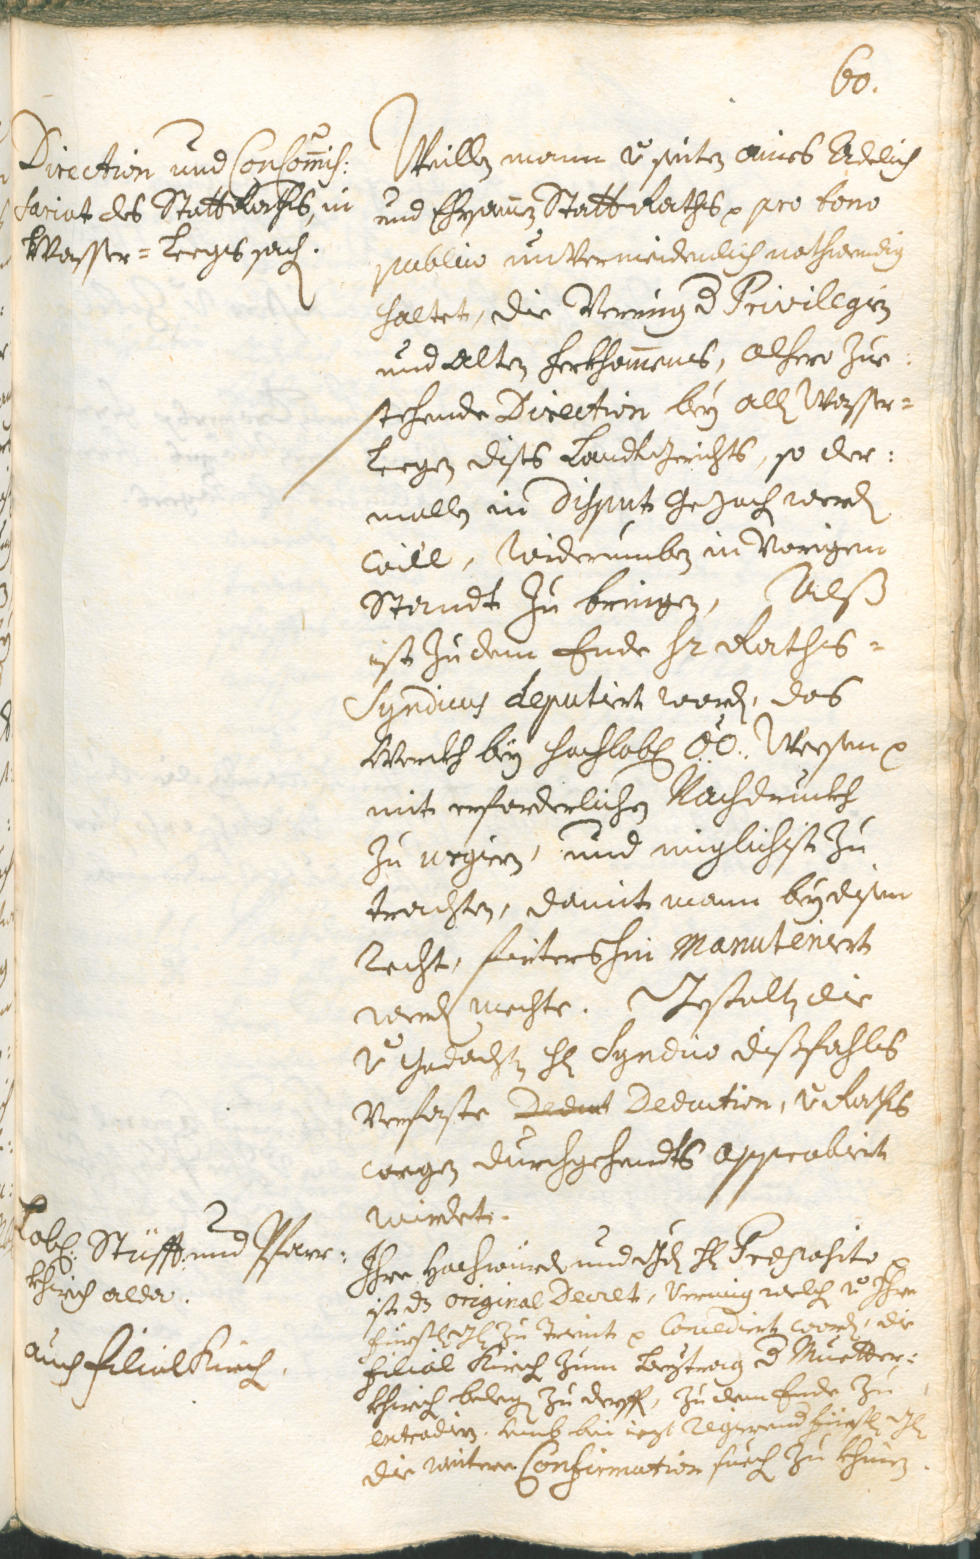 60.
Direction und Consommis:
sariat des Statt Raths, in
Wasser=Leegs sach.
Weillen mann v seiten eines Edlich
und Ehrsamen Statt Raths p pro bono
publico unvermeidentlich nothwendig
haltet, die Vermüg d Privilegien
und alten herkhommens, alhero zue:
stehende Direction bey all Wasser=
Leegen diss Landtgerichts, so der:
mallen in Disput gezoch werd
will, widerumben in vorigen
Standt zu bringen, Alß
ist zu dem Ende hr Raths=
Syndicus deputirt word, das
Werckh bey hochlobl OÖ: Weesen p
mit erforderlichen Nachdruckh
zu urgiern, und miglichist zu
trachten, damit mann bey disem
Recht, fürtershin Manutenirt
werd mechte. Gestalten die
v gedachten hl Syndico dissfahls
verfaste Deduct Deduction, v Raths
weegen durchgehendts approbirt
wirdet.
Lobl: Stüfft: und Pfarr:
khirch alda.
auch filial Kirch.
Ihro Hochwürd und Gd hl Preposito p
ist dz original Decret, vermüg welch v Ihro
fürstl Gd zu Trient p Concedirt word, die
filial Kirch zum beytrag d Muetter:
khirch beleg zu derff, zu dem Ende zu
extradirn. umb bei iezt regierend fürstl Gd
die weitere Confirmation suech zu khinen.